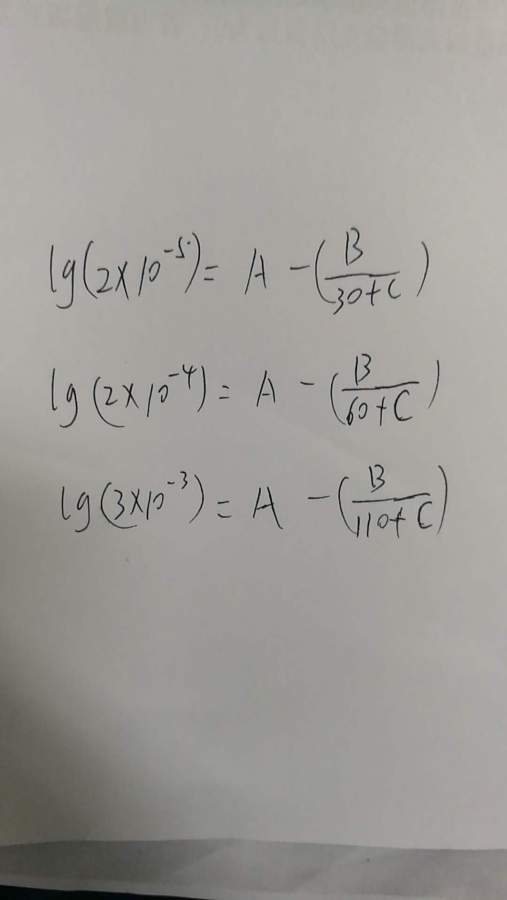 lg(2×10⁻⁵) = A - (B/(30+C))
lg(2×10⁻⁴) = A - (B/(60+C))
lg(3×10⁻³) = A - (B/(110+C))